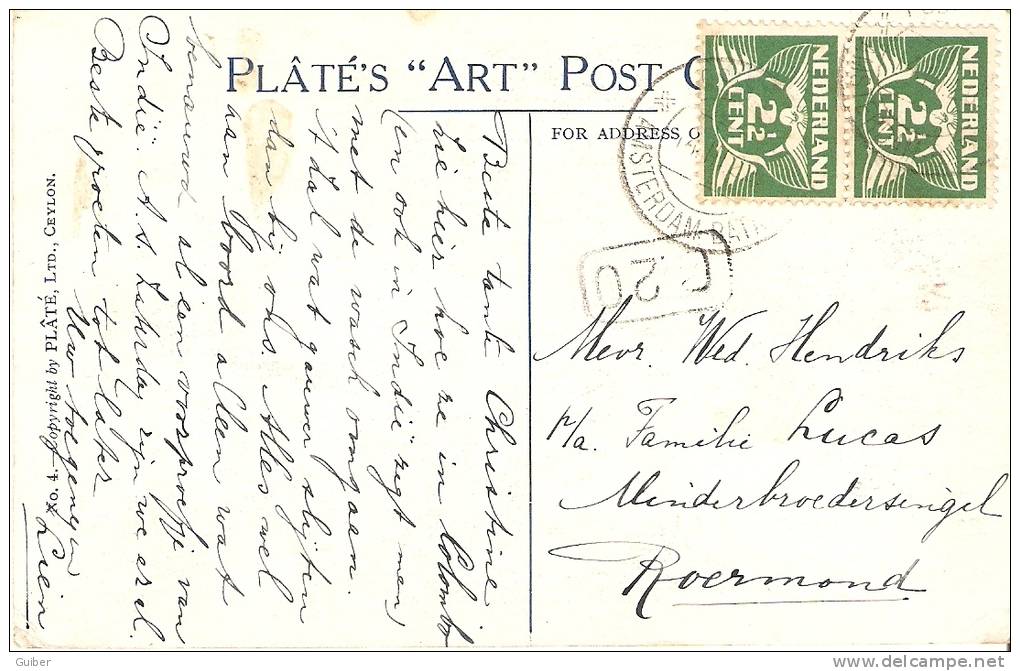 PLÂTÉ'S "ART" POST C
FOR ADDRESS O
No. 4. Copyright by PLÂTÉ, LTD., CEYLON.
NEDERLAND
2½
CENT
NEDERLAND
2½
CENT
AMSTERDAM-BATA
C 20
Beste tante Christine
zie hier hoe ze in Colombo
(en ook in Indië zegt men)
met de wasch omgaan.
't Zal wat gauwer slijten
dan bij ons. Alles wel
aan boord alleen wat
benauwd al een voorproefje van
Indië. A.s. Zaterdag zijn we er al.
Beste groeten tot later
Uw toegenegen
Lien
Mevr. Wed. Hendriks
p/a. Familie Lucas
Minderbroedersingel
Roermond
Guber
delcampe.net